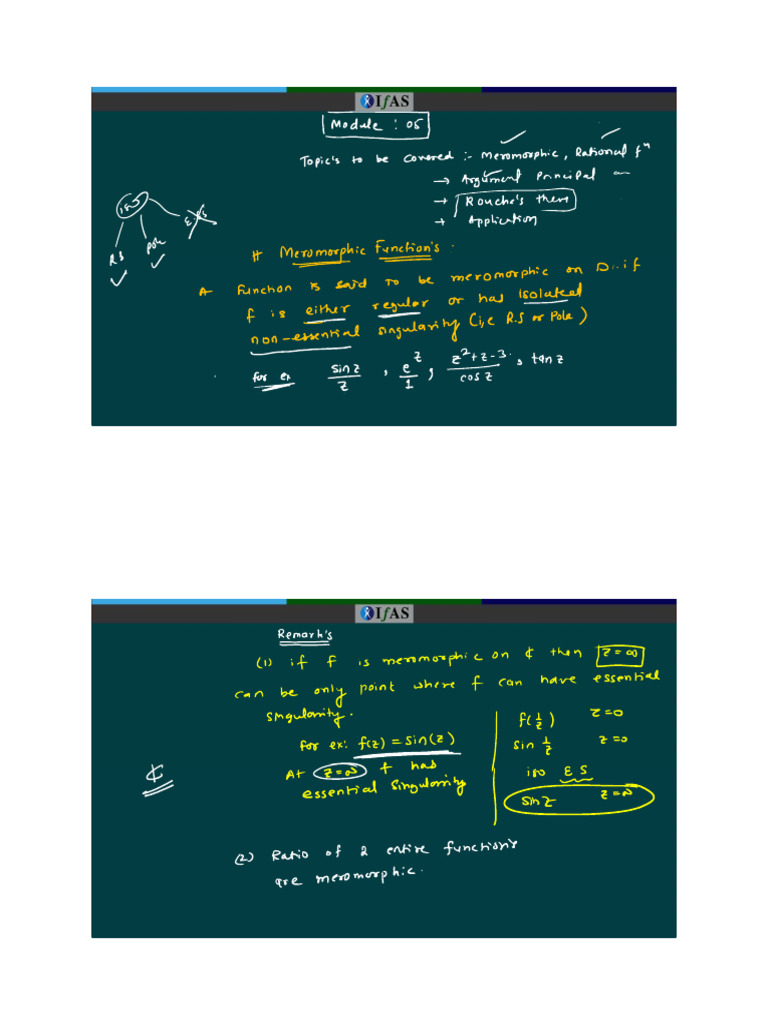 IfAS
Module : 05
Topic's to be covered :- Meromorphic, Rational fⁿ
→ Argument Principal
→ Rouche's therm
→ Application
iso
RS
Pole
E.S
# Meromorphic Function's.
A Function is said to be meromorphic on D..if
f is either regular or has isolated
non-essential singularity (i,e R.S or Pole)
for ex sinz/z , e^z/1 , z²+z-3/cosz , tanz
IfAS
Remark's
(1) if f is meromorphic on ₵ then z=∞
can be only point where f can have essential
singularity.
for ex: f(z) = sin(z)
At z=∞ f has
essential singularity
f(1/z) z=0
sin 1/z z=0
iso E S
sinz z=∞
₵
(2) Ratio of 2 entire function's
are meromorphic.